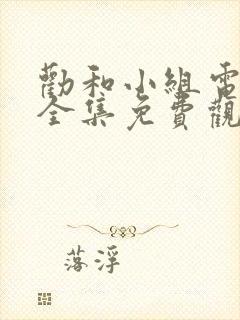 勸和小組電
全集免費觀
落浮